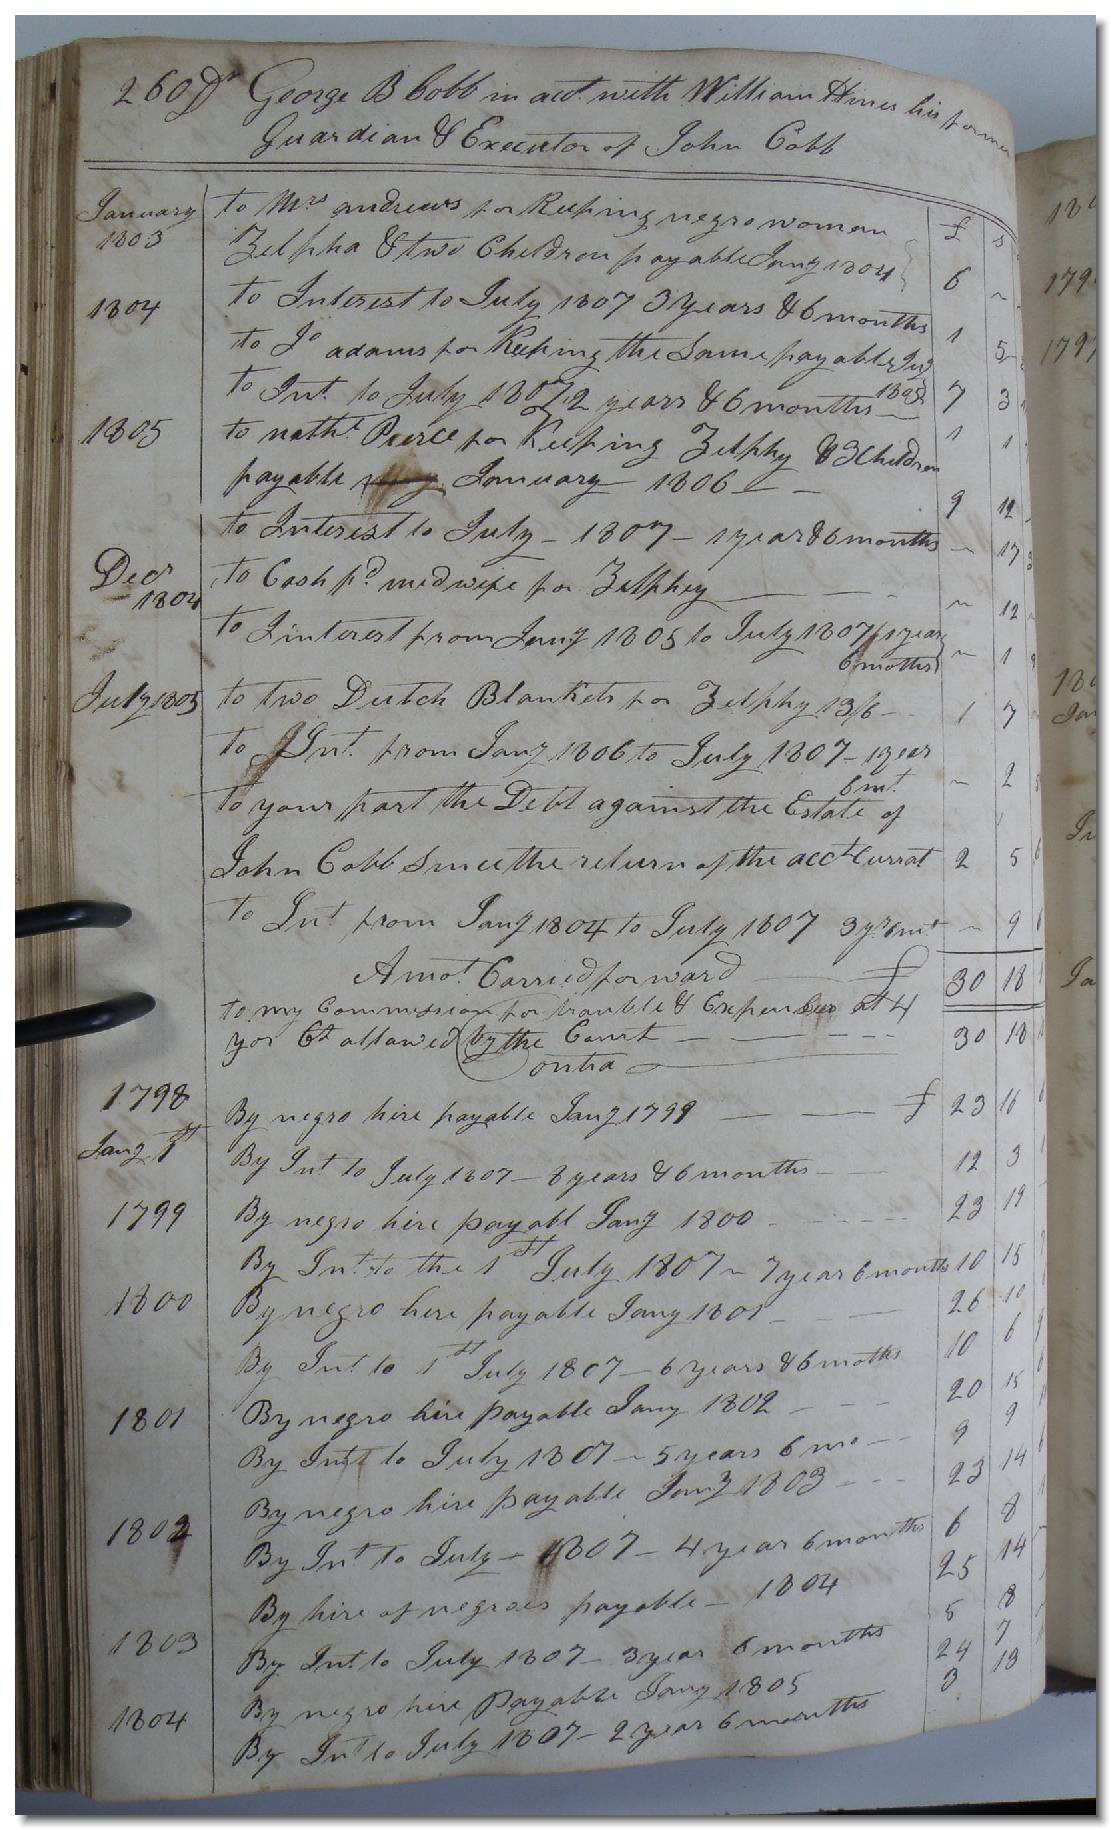 260 Dr George B Cobb in acct. with William Hines his former
Guardian & Executor of John Cobb
£ s
January 1803 to Mrs andrews for Keeping negro woman
Zelpha & two Children payable Jany 1804 6 ~
1804 to Interest to July 1807 3 years & 6 months 1 5
to Jo adams for Keeping the Same payable Jay 1805 7 3
to Int. to July 1807 2 years & 6 months 1 1
1805 to natht Pierce for Keeping Zelphy & 3 Children
payable January 1806 9 12
to Interest to July - 1807 - 1 year & 6 months ~ 17 3
Decr 1804 to Cash pd midwife for Zelphey ~ 12 ~
to Interest from Jany 1805 to July 1807 / 1 year
6 moths ~ 1 9
July 1805 to two Dutch Blankets for Zelphy 13/6 1 7
to Int. from Jany 1806 to July 1807 - 1 year
6 mt. ~ 2
to your part the Debt against the Estate of
John Cobb Since the return of the acct Currat 2 5 6
to Int from Jany 1804 to July 1807 3 yr 6 mt ~ 9
Amot. Carried forward £ 30 18
to my Commission for trouble & Expenses at 4
yor Ct allowed by the Court 30 18
Contra
1798 By negro hire payable Jany 1799 £ 23 16
Jany 1st By Int to July 1807 - 8 years & 6 months 12 3
1799 By negro hire payabl Jany 1800 23 19
By Int. to the 1st July 1807 ~ 7 year 6 months 10 15
1800 By negro hire payable Jany 1801 26 10
By Int to 1st July 1807 - 6 years & 6 moths 10 6
1801 By negro hire payable Jany 1802 20 15
By Int to July 1807 - 5 years 6 mo 9 9
By negro hire payable Jany 1803 23 14
1802 By Int to July - 1807 - 4 year 6 months 6 8
By hire of negroes payable - 1804 25 14
1803 By Int. to July 1807 - 3 year 6 months 5 8
By negro hire Payable Jany 1805 24 7
1804 By Int to July 1807 - 2 year 6 months 3 13